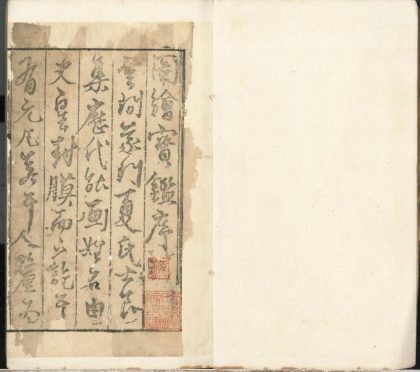 圖繪寶鑑序
雲間義門夏氏士良
集歷代能画姓名由
史皇封膜而下訖于
有元凡若干人釐為